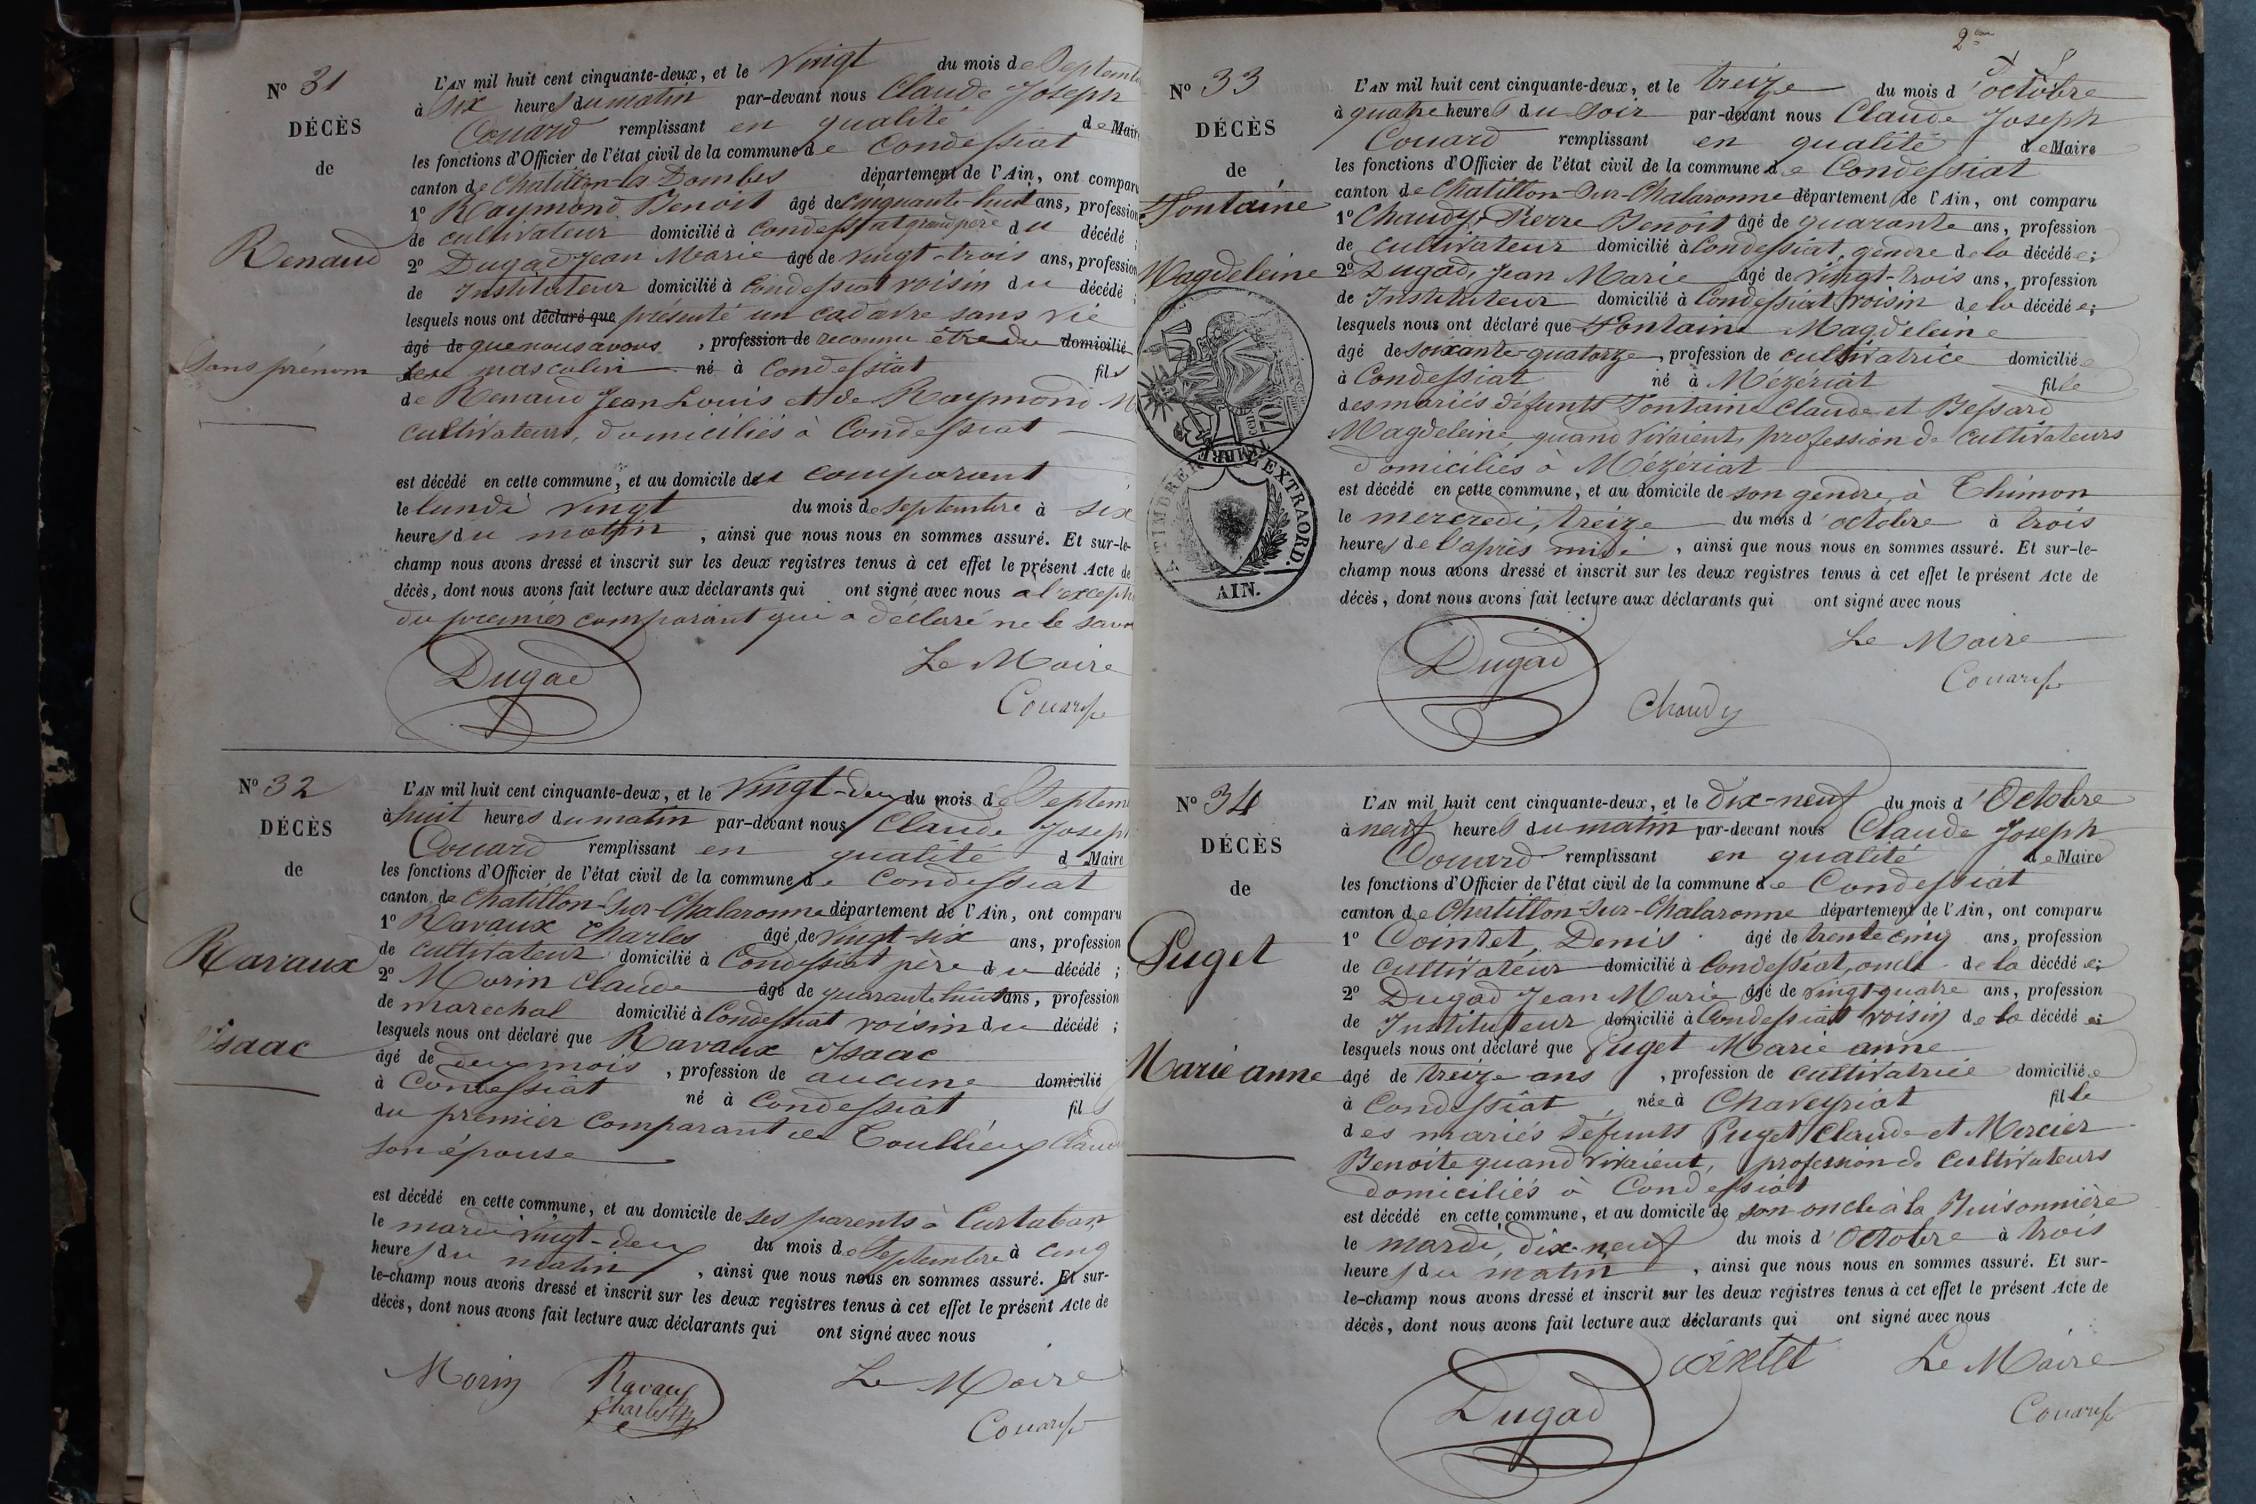 Nº 31
DÉCÈS
de
Renaud
Sans prénom
L'AN mil huit cent cinquante-deux, et le Vingt du mois de Septemb
à six heures du matin par-devant nous Claude Joseph
Couard remplissant en qualité de Maire
les fonctions d'Officier de l'état civil de la commune de Condessiat
canton de Chatillon-les-Dombes département de l'Ain, ont comparu
1º Raymond Benoit âgé de cinquante huit ans, profession
de cultivateur domicilié à Condessiat grand père du décédé ;
2º Dugad Jean Marie âgé de vingt-trois ans, profession
de Instituteur domicilié à Condessiat voisin du décédé ;
lesquels nous ont déclaré que présenté un cadavre sans vie
âgé de que nous avons , profession de reconnu être du domicilié
sexe masculin né à Condessiat fils
de Renaud Jean Louis et de Raymond M
cultivateurs, domiciliés à Condessiat
est décédé en cette commune, et au domicile du comparant
le lundi vingt du mois de septembre à six
heures du matin , ainsi que nous nous en sommes assuré. Et sur-le-
champ nous avons dressé et inscrit sur les deux registres tenus à cet effet le présent Acte de
décès, dont nous avons fait lecture aux déclarants qui ont signé avec nous a l'excepti
du premier comparant qui a déclaré ne le savoi
Dugad
Le Maire
Couard
Nº 32
DÉCÈS
de
Ravaux
Isaac
L'AN mil huit cent cinquante-deux, et le Vingt-deux du mois de Septem
à huit heures du matin par-devant nous Claude Joseph
Couard remplissant en qualité d Maire
les fonctions d'Officier de l'état civil de la commune de Condessiat
canton de Chatillon-sur-Chalaronne département de l'Ain, ont comparu
1º Ravaux Charles âgé de vingt-six ans, profession
de cultivateur domicilié à Condessiat père du décédé ;
2º Morin Claude âgé de quarante huit ans, profession
de marechal domicilié à Condessiat voisin du décédé ;
lesquels nous ont déclaré que Ravaux Isaac
âgé de deux mois , profession de aucune domicilié
à Condessiat né à Condessiat fils
du premier comparant et de Claud
son épouse
est décédé en cette commune, et au domicile de ses parents à
le mardi vingt-deux du mois de Septembre à cinq
heures du matin , ainsi que nous nous en sommes assuré. Et sur-
le-champ nous avons dressé et inscrit sur les deux registres tenus à cet effet le présent Acte de
décès, dont nous avons fait lecture aux déclarants qui ont signé avec nous
Morin
Ravaux
Charles
Le Maire
Couard
Nº 33
DÉCÈS
de
Fontaine
Magdeleine
A TIMBRER EXTRAORD.
AIN.
L'AN mil huit cent cinquante-deux, et le treize du mois d'octobre
à quatre heures du soir par-devant nous Claude Joseph
Couard remplissant en qualité de Maire
les fonctions d'Officier de l'état civil de la commune de Condessiat
canton de Chatillon-sur-Chalaronne département de l'Ain, ont comparu
1º Chaudy, Pierre Benoît âgé de quarante ans, profession
de cultivateur domicilié à Condessiat, gendre de la décédée ;
2º Dugad, Jean Marie âgé de vingt-trois ans, profession
de Instituteur domicilié à Condessiat voisin de la décédée ;
lesquels nous ont déclaré que Fontaine Magdeleine
âgé de soixante-quatorze , profession de cultivatrice domiciliée
à Condessiat né à Mézériat fille
des mariés défunts Fontaine Claude et Bessard
Magdeleine, quand vivaient, profession de cultivateurs
domiciliés à Mézériat
est décédé en cette commune, et au domicile de son gendre, à Thimon
le mercredi, treize du mois d'octobre à trois
heures de l'après midi , ainsi que nous nous en sommes assuré. Et sur-le-
champ nous avons dressé et inscrit sur les deux registres tenus à cet effet le présent Acte de
décès, dont nous avons fait lecture aux déclarants qui ont signé avec nous
Dugad
Chaudy
Le Maire
Couard
Nº 34
DÉCÈS
de
Puget
Marie anne
L'AN mil huit cent cinquante-deux, et le dix-neuf du mois d'Octobre
à neuf heures du matin par-devant nous Claude Joseph
Couard remplissant en qualité de Maire
les fonctions d'Officier de l'état civil de la commune de Condessiat
canton de Chatillon-sur-Chalaronne département de l'Ain, ont comparu
1º Cointet, Denis âgé de trente cinq ans, profession
de cultivateur domicilié à Condessiat, oncle de la décédée ;
2º Dugad Jean Marie âgé de vingt quatre ans, profession
de Instituteur domicilié à Condessiat voisin de la décédée
lesquels nous ont déclaré que Puget Marie anne
âgé de treize ans , profession de cultivatrice domiciliée
à Condessiat née à Chaveyriat fille
des mariés défunts Puget Claude et Mercier
Benoite quand vivaient, profession de cultivateurs
domiciliés à Condessiat
est décédé en cette commune, et au domicile de son oncle à la Buisonnière
le mardi, dix-neuf du mois d'Octobre à trois
heures du matin , ainsi que nous nous en sommes assuré. Et sur-
le-champ nous avons dressé et inscrit sur les deux registres tenus à cet effet le présent Acte de
décès, dont nous avons fait lecture aux déclarants qui ont signé avec nous
Cointet
Dugad
Le Maire
Couard